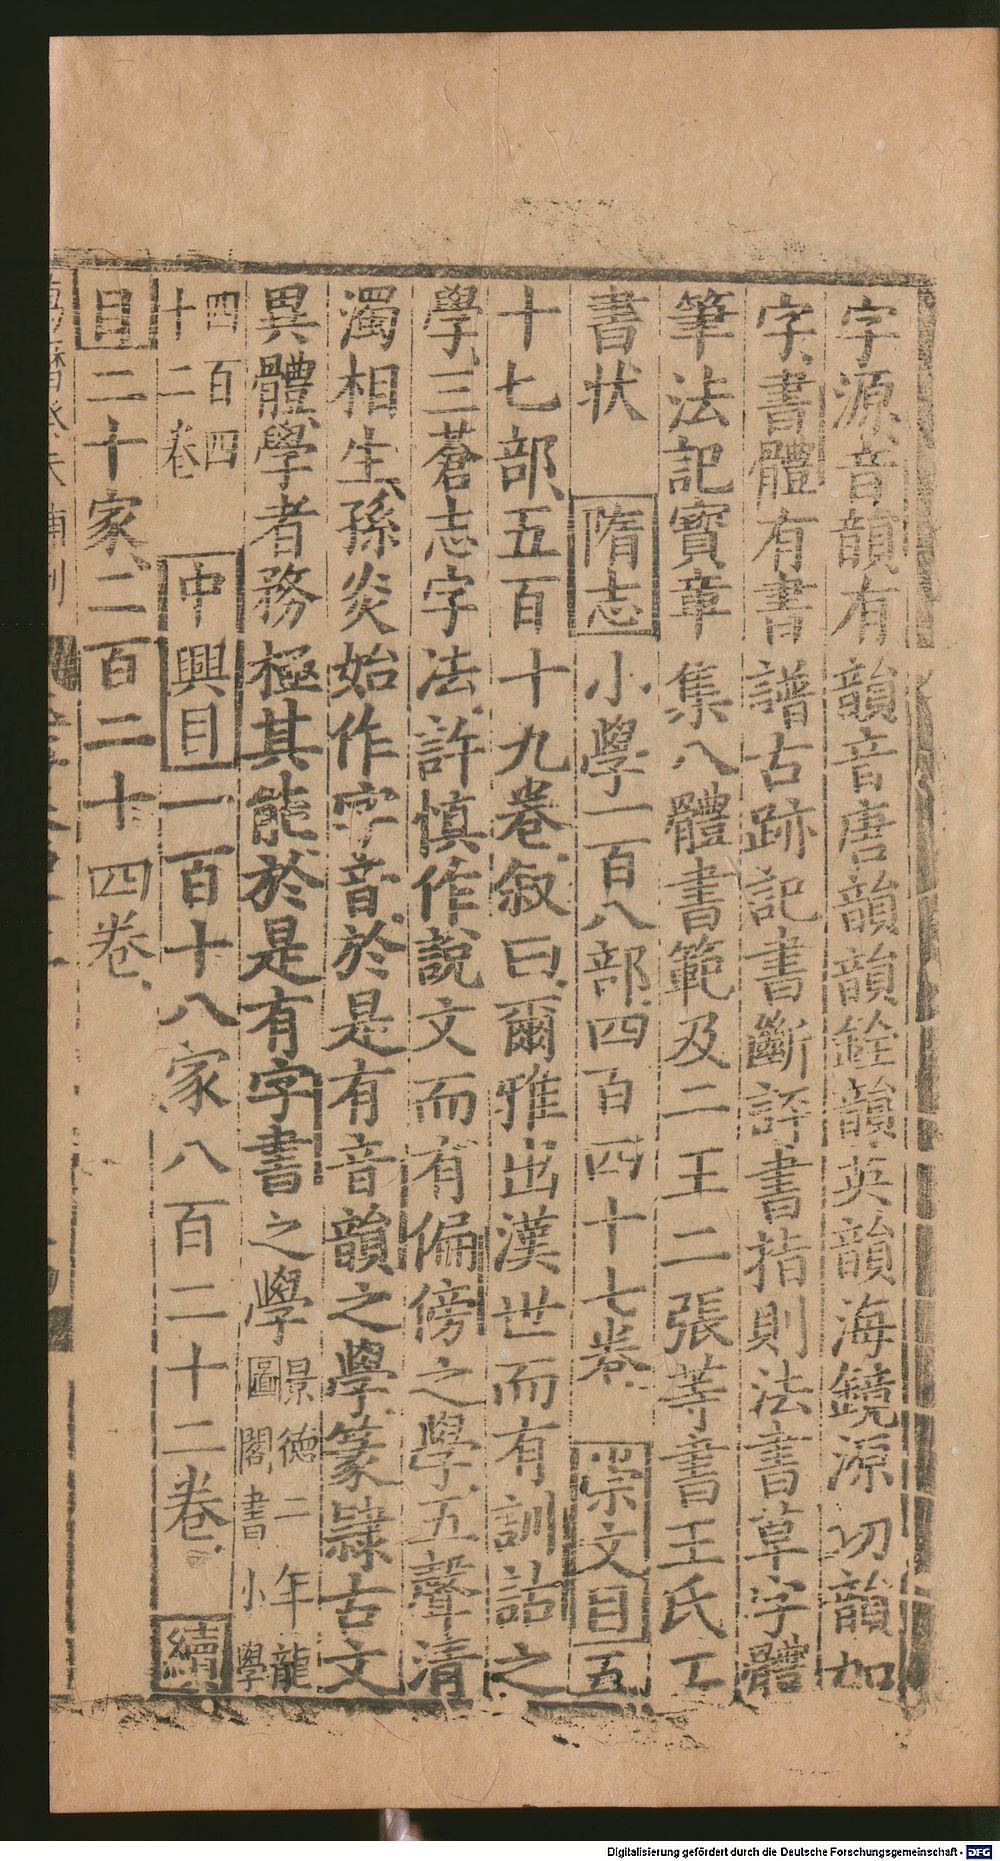 字源音韻有韻音唐韻韻銓韻英韻海鏡源切韻加
字書體有書譜古跡記書斷評書指則法書草字體
筆法記寶章集八體書範及二王二張等書王氏工
書狀 隋志 小學一百八部四百四十七卷 崇文目 五
十七部五百十九卷叙曰爾雅出漢世而有訓詁之
學三蒼志字法許慎作說文而有偏傍之學五聲清
濁相生孫炎始作字音於是有音韻之學篆隷古文
異體學者務極其能於是有字書之學 景德二年龍
圖閣書小學
四百四
十二卷
中興目 一百十八家八百二十二卷 續
目 二十家二百二十四卷
Digitalisierung gefördert durch die Deutsche Forschungsgemeinschaft - DFG